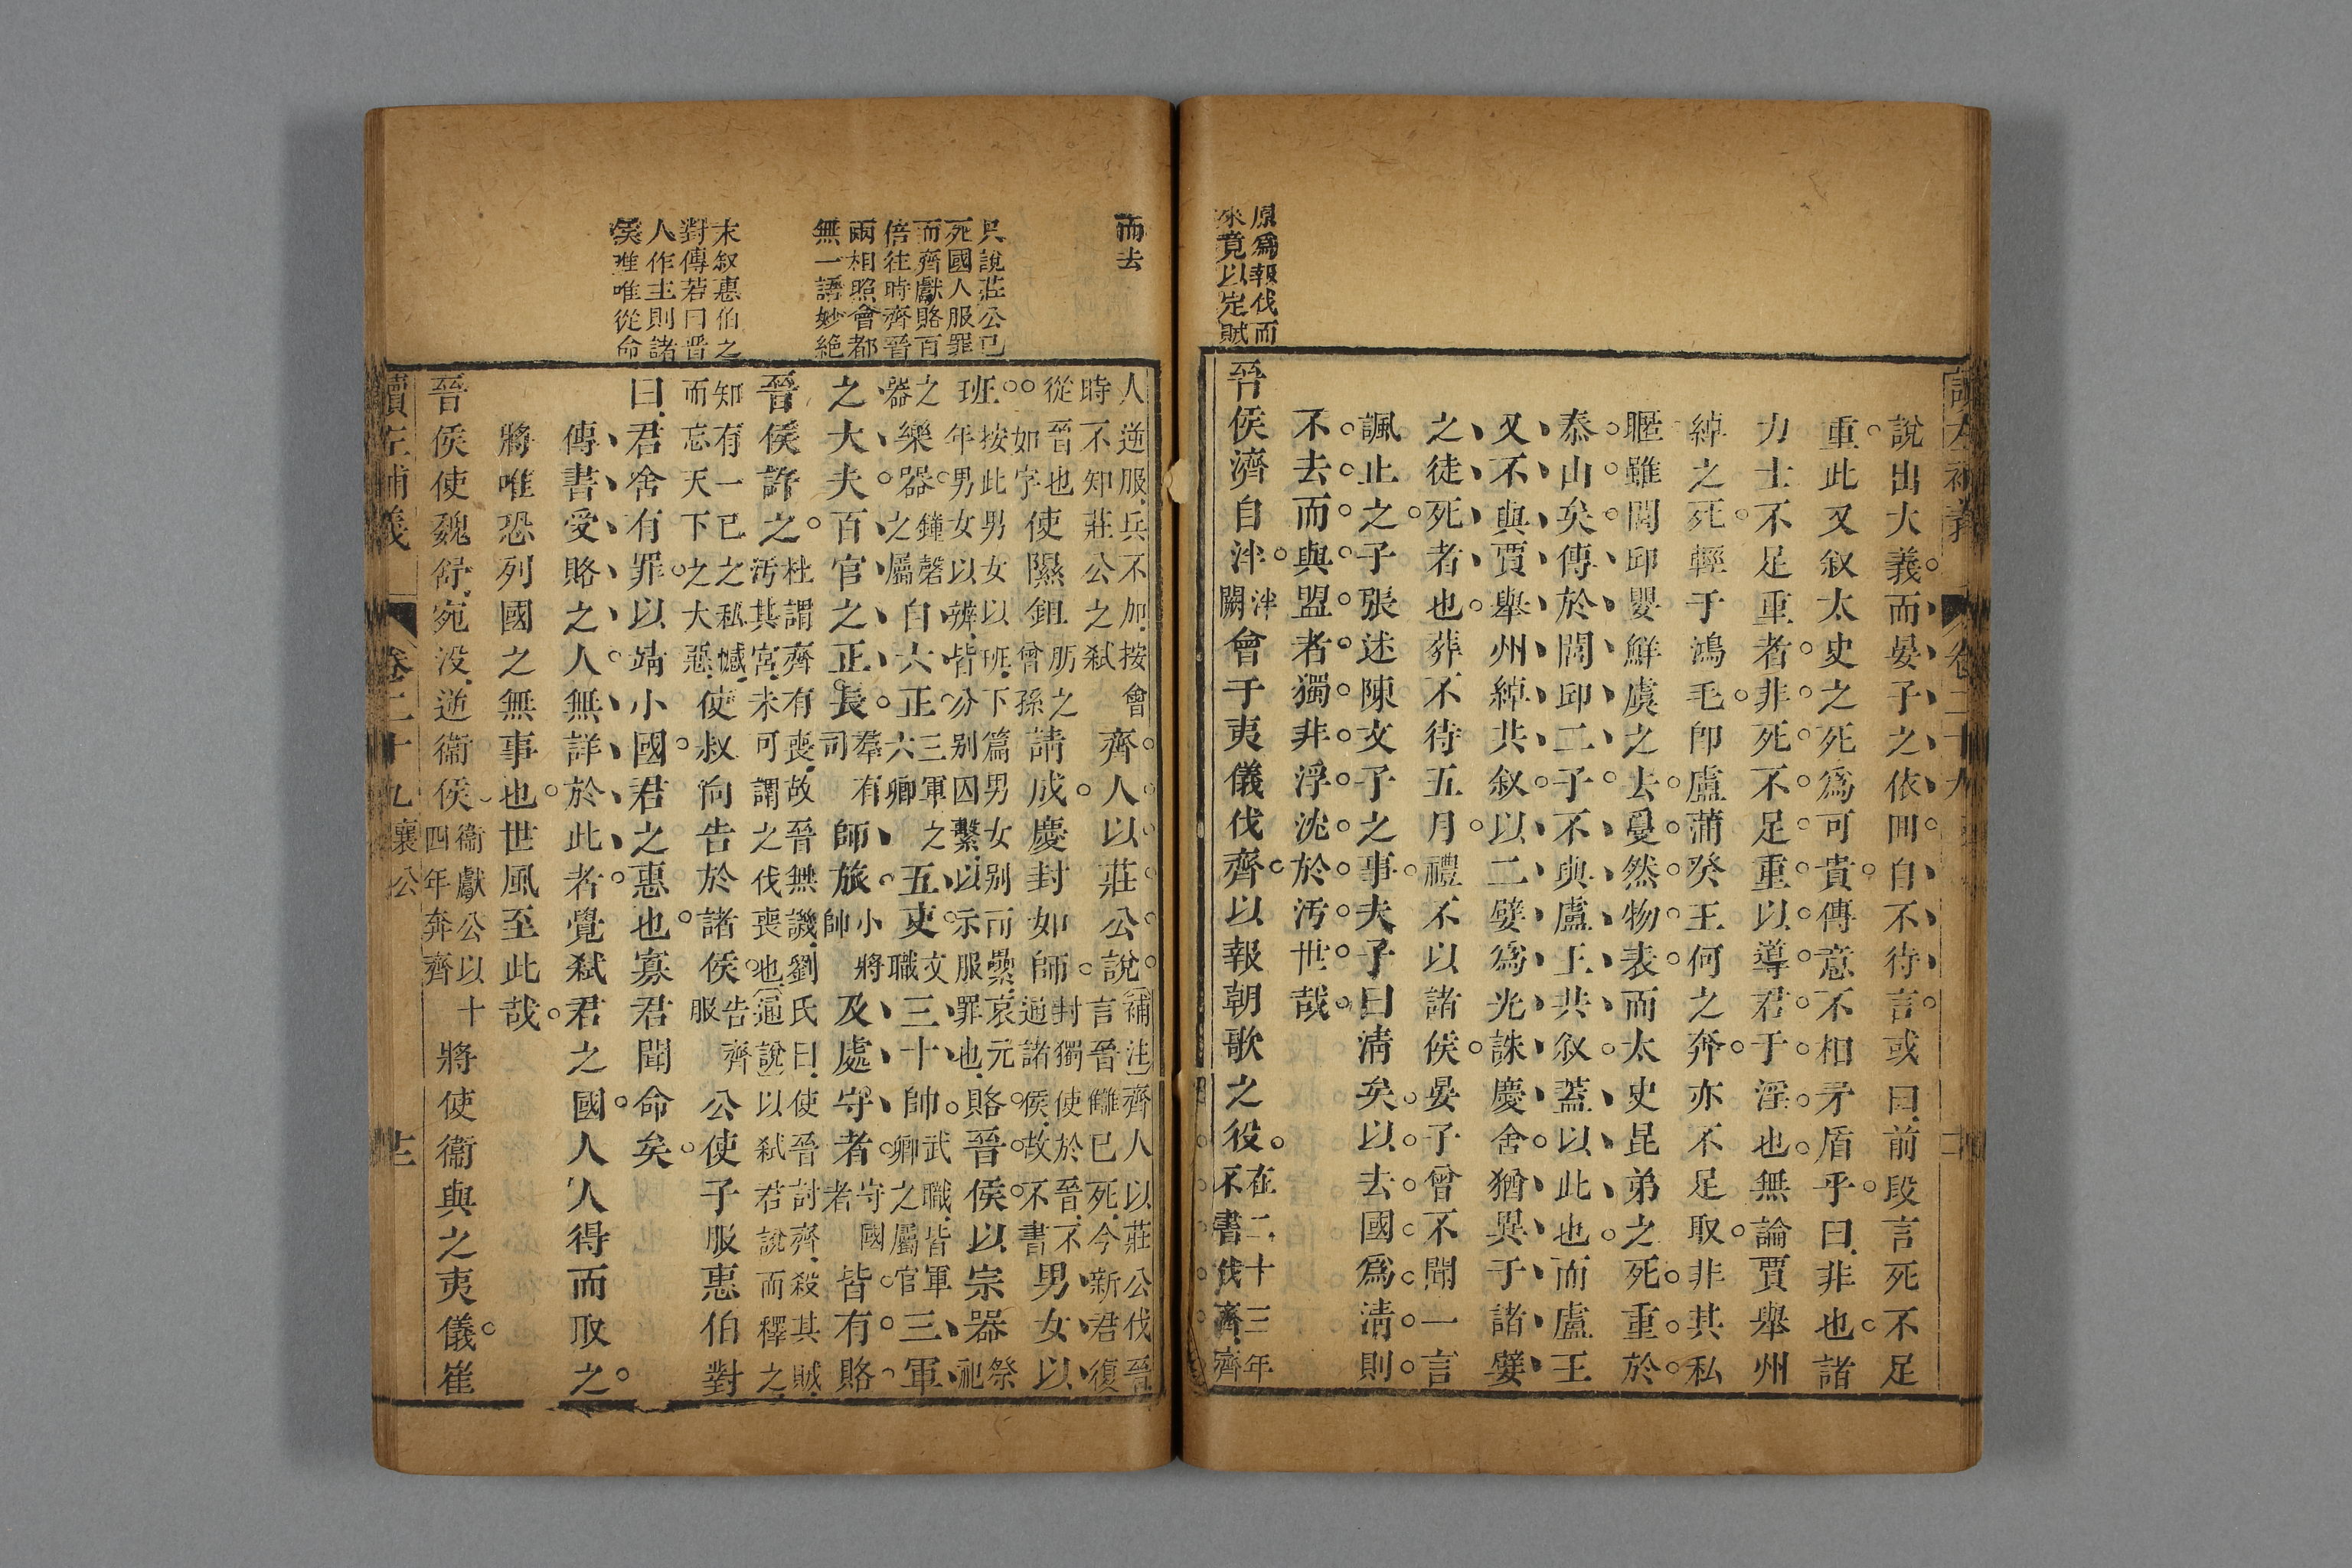 讀左補義 卷二十九
說出大義而晏子之依囘自不待言或曰前段言死不足
重此又叙太史之死為可貴傳意不相矛盾乎曰非也諸
力士不足重者非死不足重以導君于淫也無論賈舉州
綽之死輕于鴻毛卽盧蒲癸王何之奔亦不足取非其私
暱雖閭邱嬰鮮虞之去戞然物表而太史昆弟之死重於
泰山矣傳於閭邱二子不與盧王共叙蓋以此也而盧王
又不與賈舉州綽共叙以二嬖為光誅慶舍猶異于諸嬖
之徒死者也葬不待五月禮不以諸侯晏子曾不聞一言
諷止之子張述陳文子之事夫子曰清矣以去國為清則
不去而與盟者獨非浮沈於汚世哉
原為報伐而
來竟以定賊
晉侯濟自泮泮闕會于夷儀伐齊以報朝歌之役在二十三年不書伐齊齊
而去
人逆服兵不加按會時不知莊公之弑齊人以莊公說補注齊人以莊公伐晉言晉讎已死今新君復
從晉也如字使隰鉏朋之曾孫請成慶封如師封獨使於晉不通諸侯故不書男女以
只說莊公已
死國人服罪
而齊獻賂百
倍往時齊晉
兩相照會都
無一語妙絶
班按此男女以班下篇男女別而纍哀元年男女以辨皆分別囚繫以示服罪也賂晉侯以宗器祭祀
之器樂器鐘磬之屬自六正三軍之六卿五吏文職三十帥武職皆軍卿之屬官三軍
之大夫百官之正長羣有司師旅小將帥及處守者守國者皆有賂
晉侯許之杜謂齊有喪故晉無譏劉氏曰使晉討齊殺其賊汚其宮未可謂之伐喪也通說以弑君說而釋之
末叙惠伯之
對傳若曰晉
人作主則諸
侯唯唯從命
知有一已之私憾而忘天下之大惡使叔向告於諸侯告齊服公使子服惠伯對
曰君舍有罪以靖小國君之惠也寡君聞命矣
傳書受賂之人無詳於此者覺弑君之國人人得而取之
將唯恐列國之無事也世風至此哉
晉侯使魏舒宛没逆衞侯衞獻公以十四年奔齊將使衞與之夷儀崔
讀左補義 卷二十九 襄公